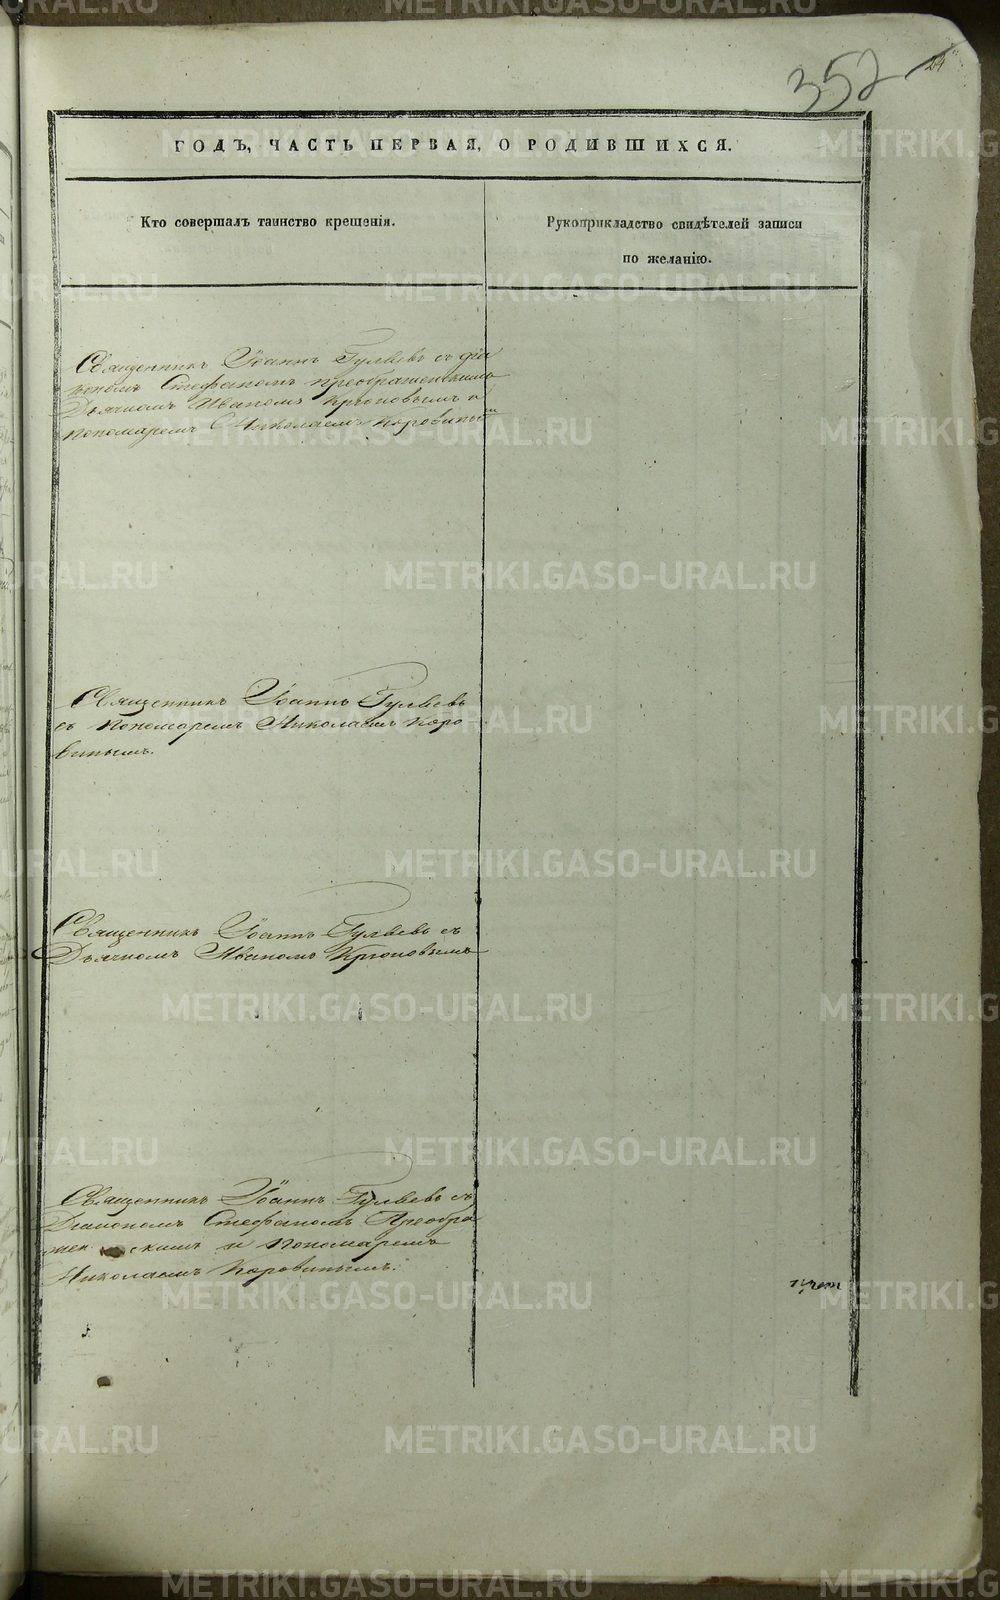 352
24
ГОДЪ, ЧАСТЬ ПЕРВАЯ, О РОДИВШИХСЯ.
Кто совершалъ таинство крещенія.
Рукоприкладство свидѣтелей записи
по желанію.
Священникъ Іоаннъ Гуляевъ съ діа
кономъ Стефаномъ Преображенскимъ
Дьячкомъ Иваномъ Крюковымъ и
пономаремъ Николаемъ Коровинымъ
Священникъ Іоаннъ Гуляевъ
съ пономаремъ Николаемъ Коро
винымъ.
Священникъ Іоаннъ Гуляевъ съ
Дьячкомъ Иваномъ Крюковымъ
Священникъ Іоаннъ Гуляевъ съ
Діакономъ Стефаномъ Преобра
женскимъ и пономаремъ
Николаемъ Коровинымъ.
METRIKI.GASO-URAL.RU